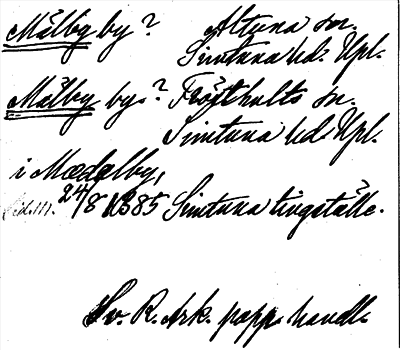 Målby by? Altuna sn.
Simtuna hd. Upl.
Målby by? Frösthults sn.
Simtuna hd Upl.
i Mædalby,
24/8 1385 Simtuna tingställe.
Sv. R. Ark. papp. handl.